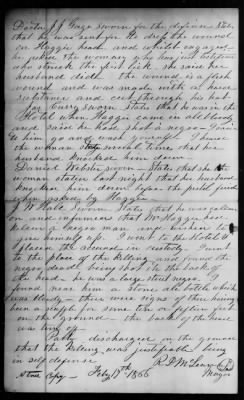 Doctor J J Gaza sworn for the defence States
that he was sent for to dress the wound
on Haggies head and whilst engaged
he asked the woman who was
who struck the first lick she said her
husband did. the wound is a flesh
wound and was made with a
substance and cut through his hat
sworn States that he was in the
Hotel when Haggie came in all bloody
and said he had shot a negro
him go and wash
the woman state several times that his
husband knocked him down
Daniel Webster sworn States that the
woman stated last night that her husband
knocked him down before the pistol fired
when asked by Haggie
W Wade sworn States that he was called
on and informed that Mr Haggie had
killed a negro man and wished to
give himself up. I went to the Hotel &
placed the accused in custody. I went
to the place of the killing and found the
negro dead being shot in the back of
the head he was a large stout negro I
found near him a stone ale bottle which
was bloody there were signs of there having
been a scuffle for some ten or fifteen feet
on the ground the back of the head
was
Party discharged on the ground
that the killing was justifiable being
in self defence
R. P. McLean
Mayor
A true Copy Feby 17th 1866